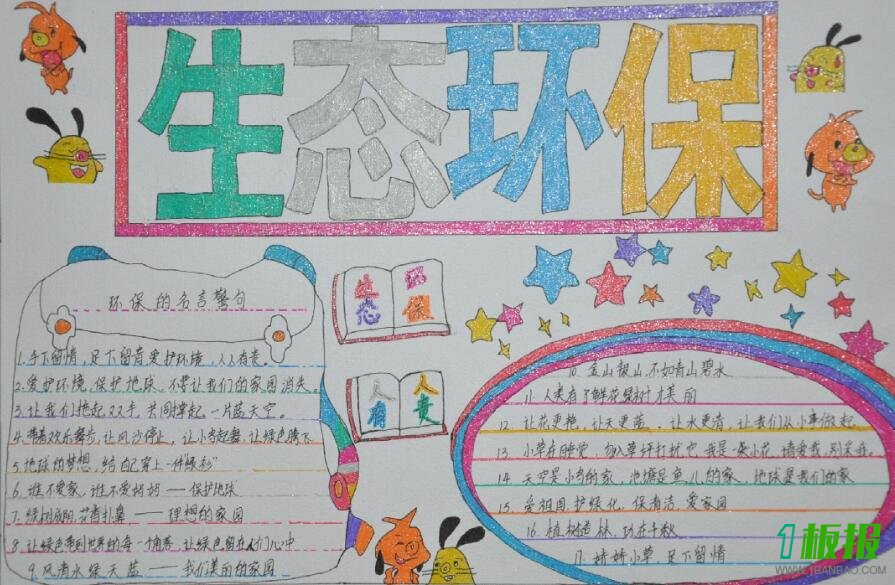 生态环保
环保的名言警句
1.手下留情,足下留青爱护环境,人人有责。
2.爱护环境,保护地球,不要让我们的家园消失。
3.让我们挽起双手,共同撑起一片蓝天空。
4.带着欢乐舞步,让风沙停止,让小鸟起舞,让绿色腾飞
5.地球的梦想,给自己穿上一件"绿衫"
6.谁不爱家,谁不爱妈妈——保护地球
7.绿树成阴 花香扑鼻——理想的家园
8.让绿色带到世界的每一个角落,让绿色留在人们心中
9.风清水绿天蓝——我们美丽的家园
生态
环保
人有
人责
10.金山银山,不如青山碧水
11.人类有了鲜花绿树才美丽
12.让花更艳,让天更蓝,让水更清,让我们从小事做起
13.小草在睡觉,勿入草坪打扰它,我是一朵小花,请爱我,别采我。
14.天空是小鸟的家,池塘是鱼儿的家,地球是我们的家
15.爱祖国 护绿化,保清洁 爱家园
16.植树造林,功在千秋
17.娇娇小草,足下留情
1板报
WWW.1BANBAO.COM